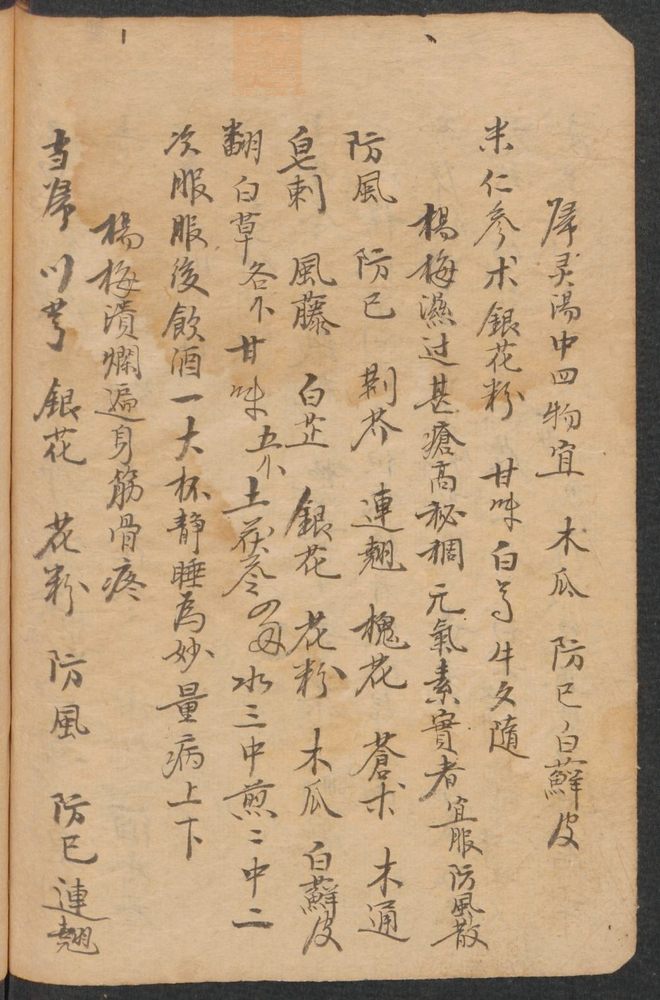 归灵湯中四物宜 木瓜 防已白蘚皮
米仁參术銀花粉 甘味白芍牛夕隨
楊梅濕过甚瘡高秘稠元氣素實者宜服防風散
防風 防已 荆芥 連翹 槐花 蒼术 木通
皂刺 風藤 白芷 銀花 花粉 木瓜 白蘚皮
翻白草各不 甘味五不 土茯苓四 水三中煎二中二
次服服後飲酒一大杯静睡為妙量病上下
楊梅潰爛遍身筋骨疼
当歸 川芎 銀花 花粉 防風 防已 連翹